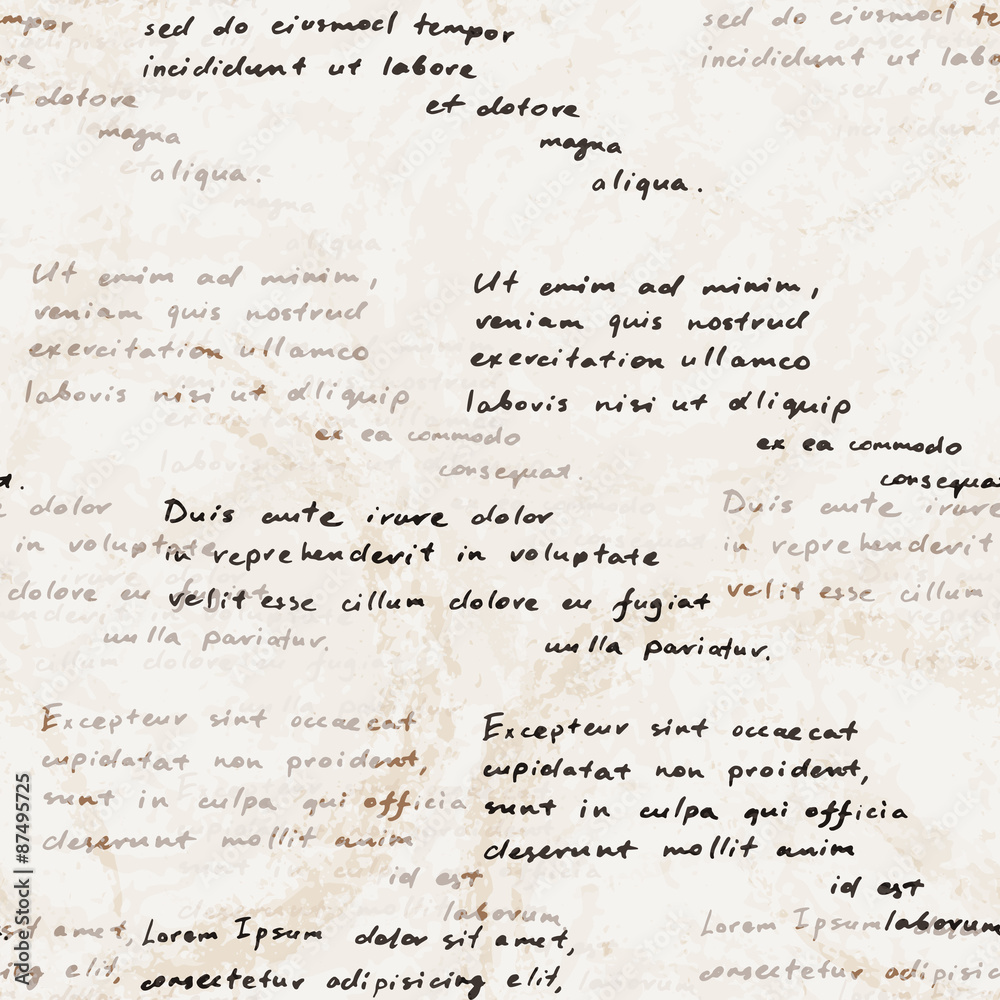 sed do eiusmod tempor
incididunt ut labore
et dotore
magna
aliqua.
sed do
incididunt ut
et dotore
magna
aliqua.
Ut enim ad minim,
veniam quis nostrud
exercitation ullamco
laboris nisi ut aliquip
ex ea commodo
consequat.
Ut enim ad minim,
veniam quis nostrud
exercitation ullamco
laboris nisi ut aliquip
ex ea commodo
dolor
in voluptate
dolore eu fugiat
nulla pariatur.
Duis aute irure dolor
in reprehenderit in voluptate
velit esse cillum dolore eu fugiat
nulla pariatur.
Duis aute irure
in reprehenderit
velit esse cillum
Excepteur sint occaecat
cupidatat non proident,
sunt in culpa qui officia
deserunt mollit anim
id est
laborum
Excepteur sint occaecat
cupidatat non proident,
sunt in culpa qui officia
deserunt mollit anim
id est
laborum
sit amet,
elit,
Lorem Ipsum dolor sit amet,
consectetur adipisicing elit,
Lorem Ipsum
consectetur
Adobe Stock | #87495725